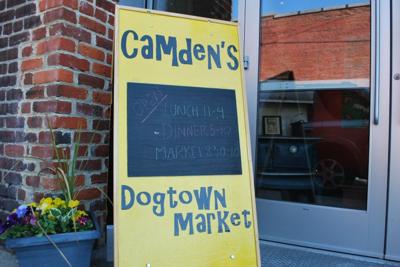 Camden's
OPEN
LUNCH 11-4
DINNER 5-10
MARKET 8:30-10
Dogtown
Market